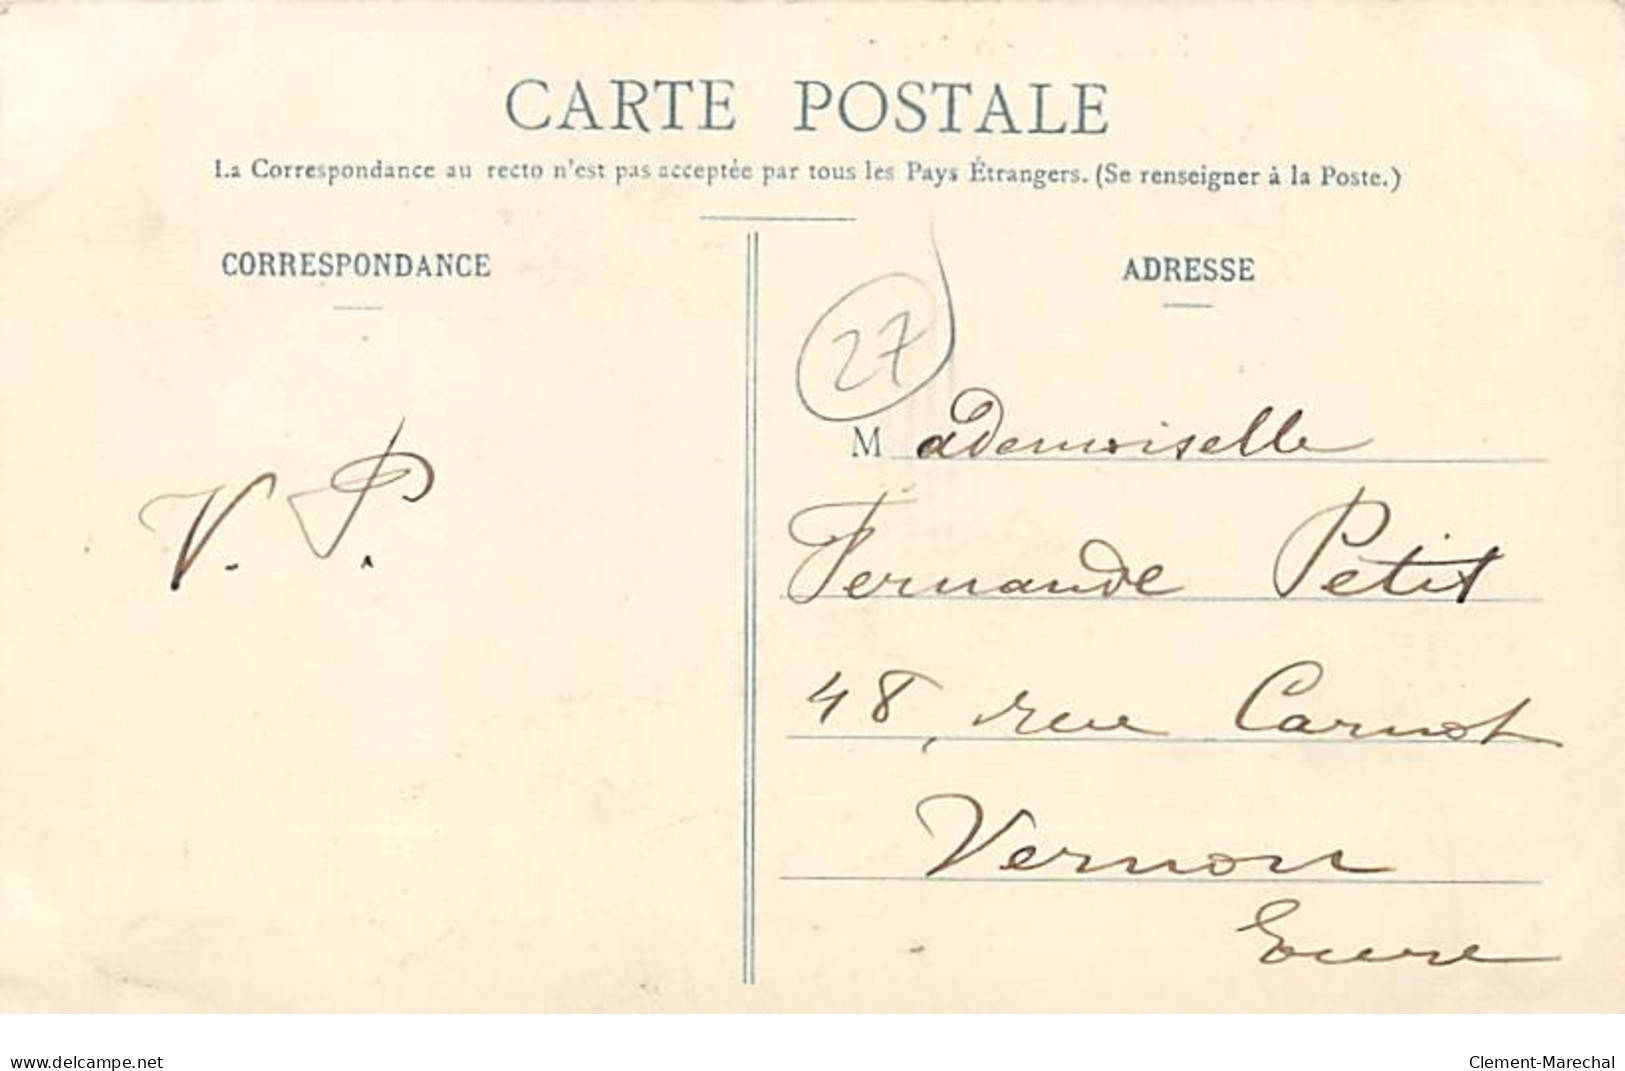 CARTE POSTALE
La Correspondance au recto n'est pas acceptée par tous les Pays Étrangers. (Se renseigner à la Poste.)
CORRESPONDANCE
V. P.
ADRESSE
27
Mademoiselle
Fernande Petit
48, rue Carnot
Vernon
Eure
www.delcampe.net
Clement-Marechal